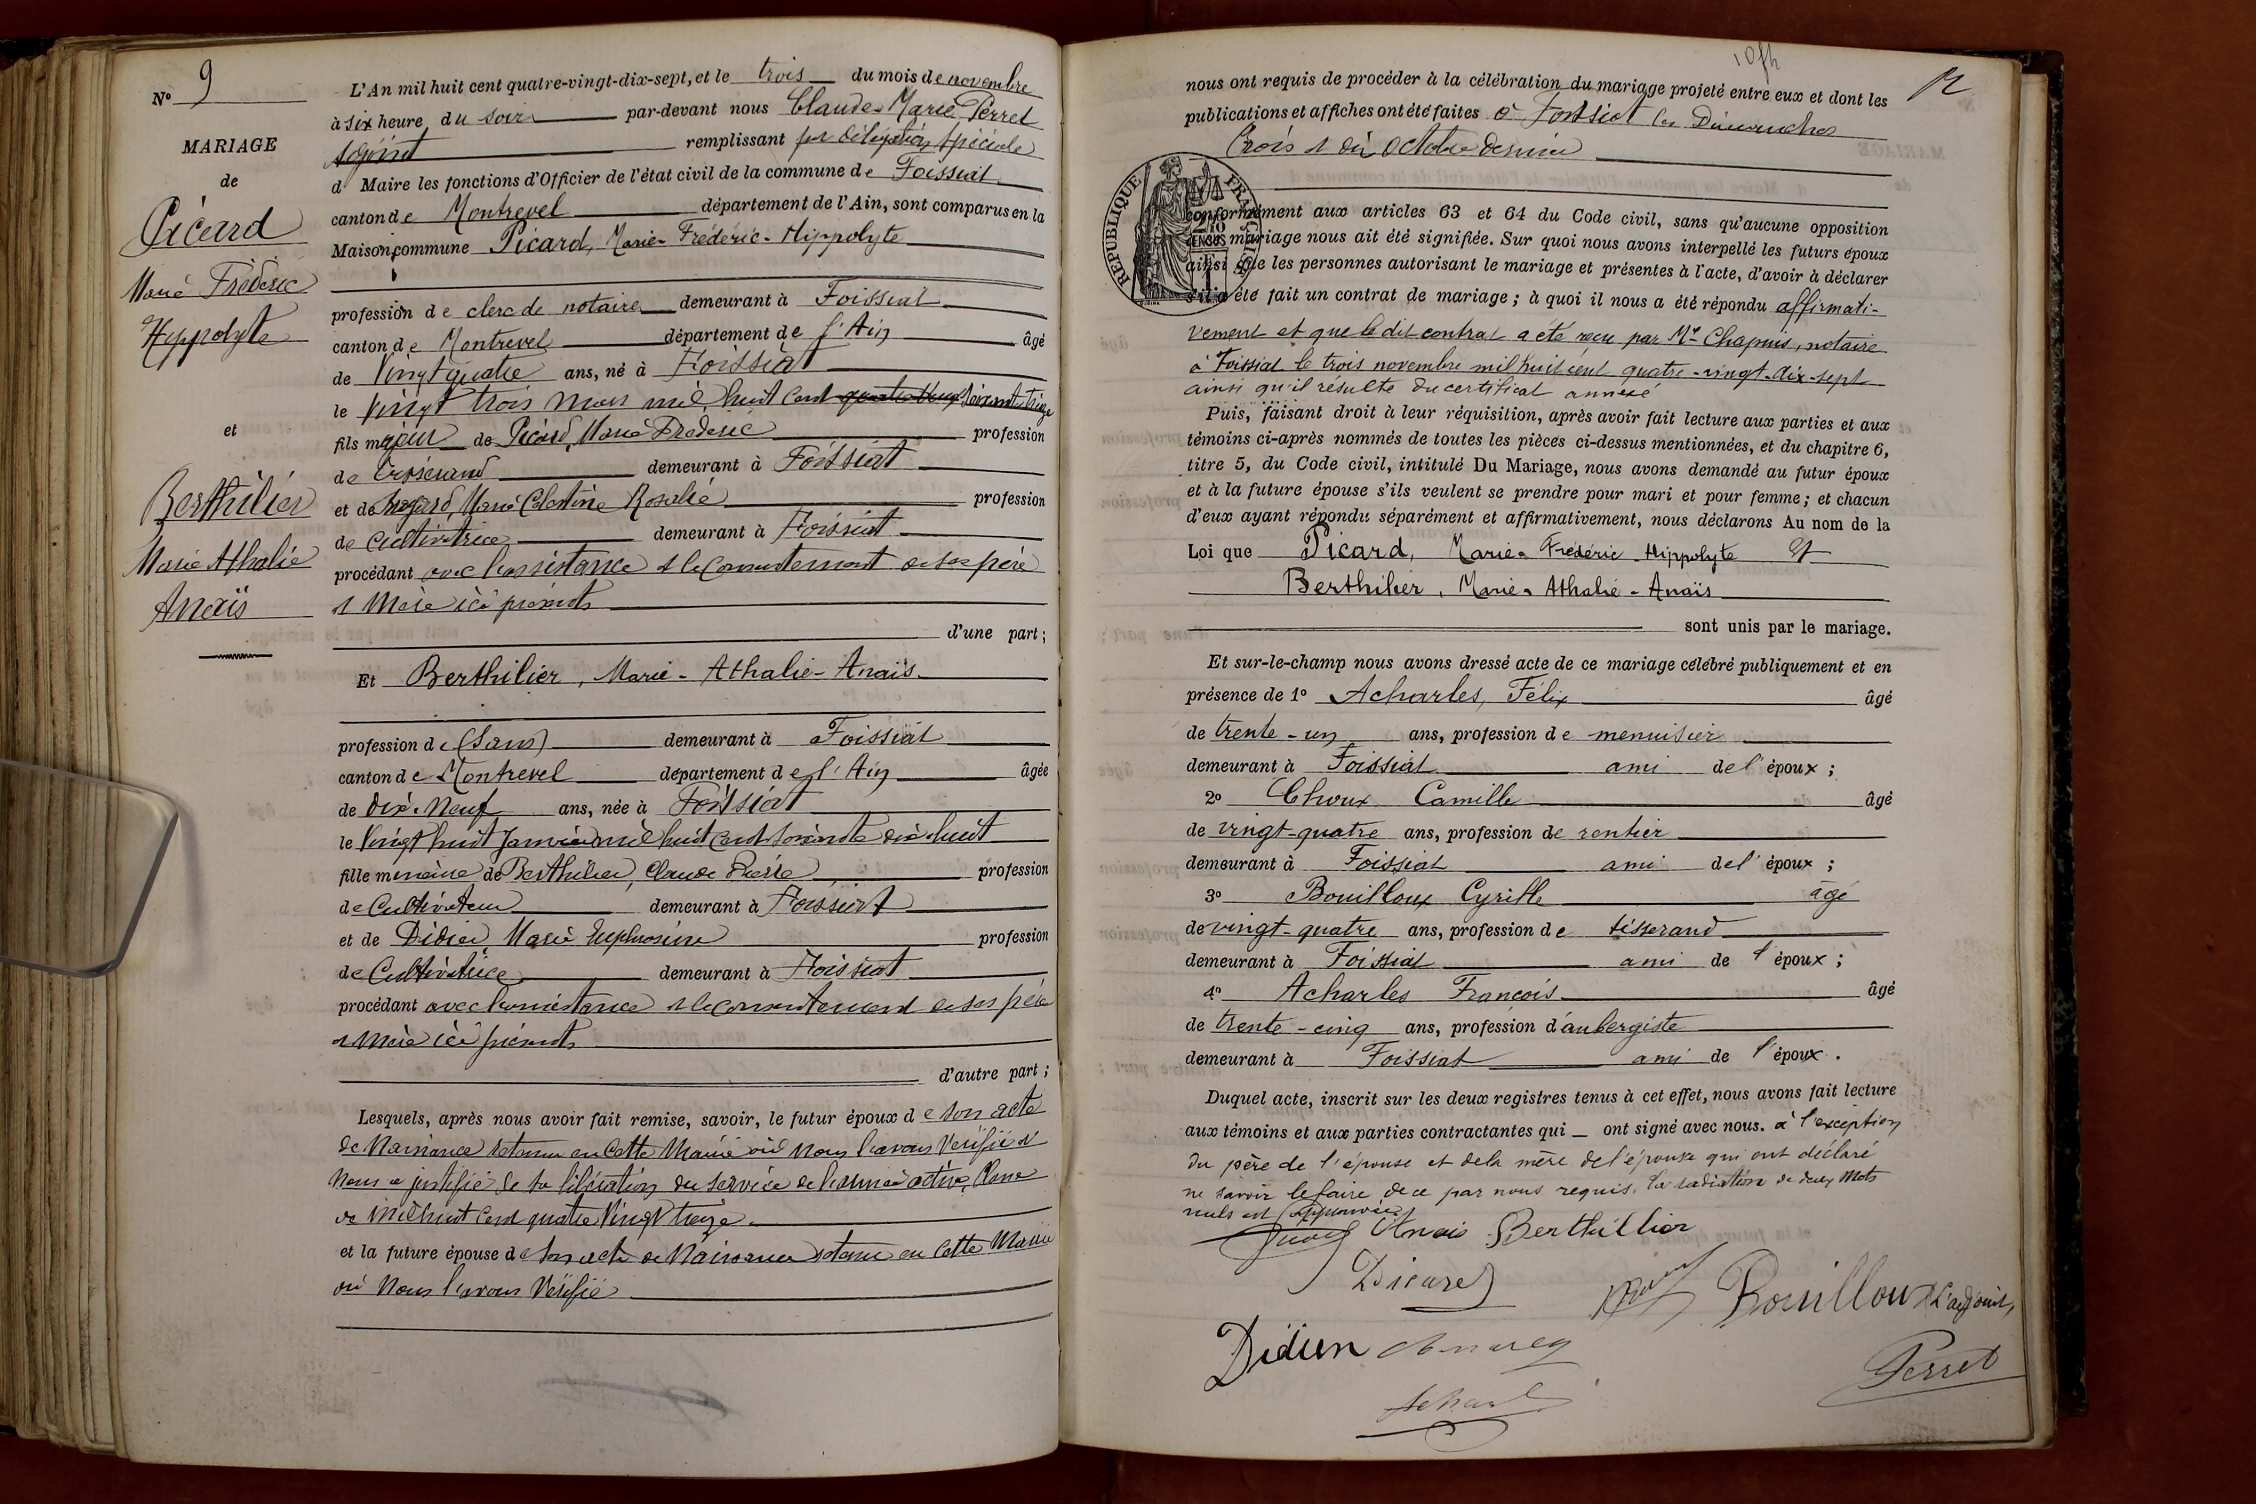 Nº 9
MARIAGE
de
Picard
Marie Frédéric
Hyppolyte
et
Berthilier
Marie Athalie
Anaïs
L'An mil huit cent quatre-vingt-dix-sept, et le trois du mois de novembre
à six heure du soir par-devant nous Claude-Marie Perret
Adjoint remplissant par délégation spéciale
d Maire les fonctions d'Officier de l'état civil de la commune de Foissiat
canton de Montrevel département de l'Ain, sont comparus en la
Maison commune Picard, Marie-Frédéric-Hippolyte
profession de clerc de notaire demeurant à Foissiat
canton de Montrevel département de l'Ain âgé
de Vingt quatre ans, né à Foissiat
le Vingt trois Mars mil huit cent quatre vingt soixante treize
fils majeur de Picard, Marie Frédéric profession
de demeurant à Foissiat
et de Marie Celestine Rosalie profession
de Cultivatrice demeurant à Foissiat
procédant avec l'assistance & le consentement de ses père
& Mère ici présents
d'une part ;
Et Berthilier, Marie-Athalie-Anaïs
profession de (sans) demeurant à Foissiat
canton de Montrevel département de l'Ain âgée
de dix-neuf ans, née à Foissiat
le Vingt huit Janvier mil huit cent soixante dix huit
fille mineure de Berthilier, Claude Pierre profession
de Cultivateur demeurant à Foissiat
et de Didier, Marie Euphrosine profession
de Cultivatrice demeurant à Foissiat
procédant avec l'assistance & le consentement de ses père
& Mère ici présents
d'autre part ;
Lesquels, après nous avoir fait remise, savoir, le futur époux de son acte
de Naissance retenu en cette Mairie où nous l'avons Vérifié &
Nous a justifié de sa libération du service de l'armée active, Classe
de mil huit cent quatre Vingt treize
et la future épouse de son acte de Naissance retenu en cette Mairie
où Nous l'avons Vérifié
12
nous ont requis de procéder à la célébration du mariage projeté entre eux et dont les
publications et affiches ont été faites à Foissiat les Dimanches
trois & dix octobre dernier
RÉPUBLIQUE FRANÇAISE
conformément aux articles 63 et 64 du Code civil, sans qu'aucune opposition
mariage nous ait été signifiée. Sur quoi nous avons interpellé les futurs époux
ainsi que les personnes autorisant le mariage et présentes à l'acte, d'avoir à déclarer
s'il a été fait un contrat de mariage ; à quoi il nous a été répondu affirmati-
vement et que le dit contrat a été reçu par Me Chapuis, notaire
à Foissiat le trois novembre mil huit cent quatre-vingt-dix-sept
ainsi qu'il résulte du certificat annexé
Puis, faisant droit à leur réquisition, après avoir fait lecture aux parties et aux
témoins ci-après nommés de toutes les pièces ci-dessus mentionnées, et du chapitre 6,
titre 5, du Code civil, intitulé Du Mariage, nous avons demandé au futur époux
et à la future épouse s'ils veulent se prendre pour mari et pour femme ; et chacun
d'eux ayant répondu séparément et affirmativement, nous déclarons Au nom de la
Loi que Picard, Marie-Frédéric-Hippolyte Et
Berthilier, Marie-Athalie-Anaïs
sont unis par le mariage.
Et sur-le-champ nous avons dressé acte de ce mariage célébré publiquement et en
présence de 1º Acharles, Félix âgé
de trente-un ans, profession de menuisier
demeurant à Foissiat ami de l'époux ;
2º Choux Camille âgé
de vingt-quatre ans, profession de rentier
demeurant à Foissiat ami de l'époux ;
3º Bouilloux Cyrille âgé
de vingt-quatre ans, profession de tisserand
demeurant à Foissiat ami de l'époux ;
4º Acharles François âgé
de trente-cinq ans, profession d'aubergiste
demeurant à Foissiat ami de l'époux.
Duquel acte, inscrit sur les deux registres tenus à cet effet, nous avons fait lecture
aux témoins et aux parties contractantes qui ont signé avec nous. à l'exception
du père de l'épouse et de la mère de l'épouse qui ont déclaré
ne savoir le faire de ce par nous requis. La radiation de deux Mots
nuls est approuvée
Anais Berthillier
Picard
Bouilloux L'adjoint,
Perret